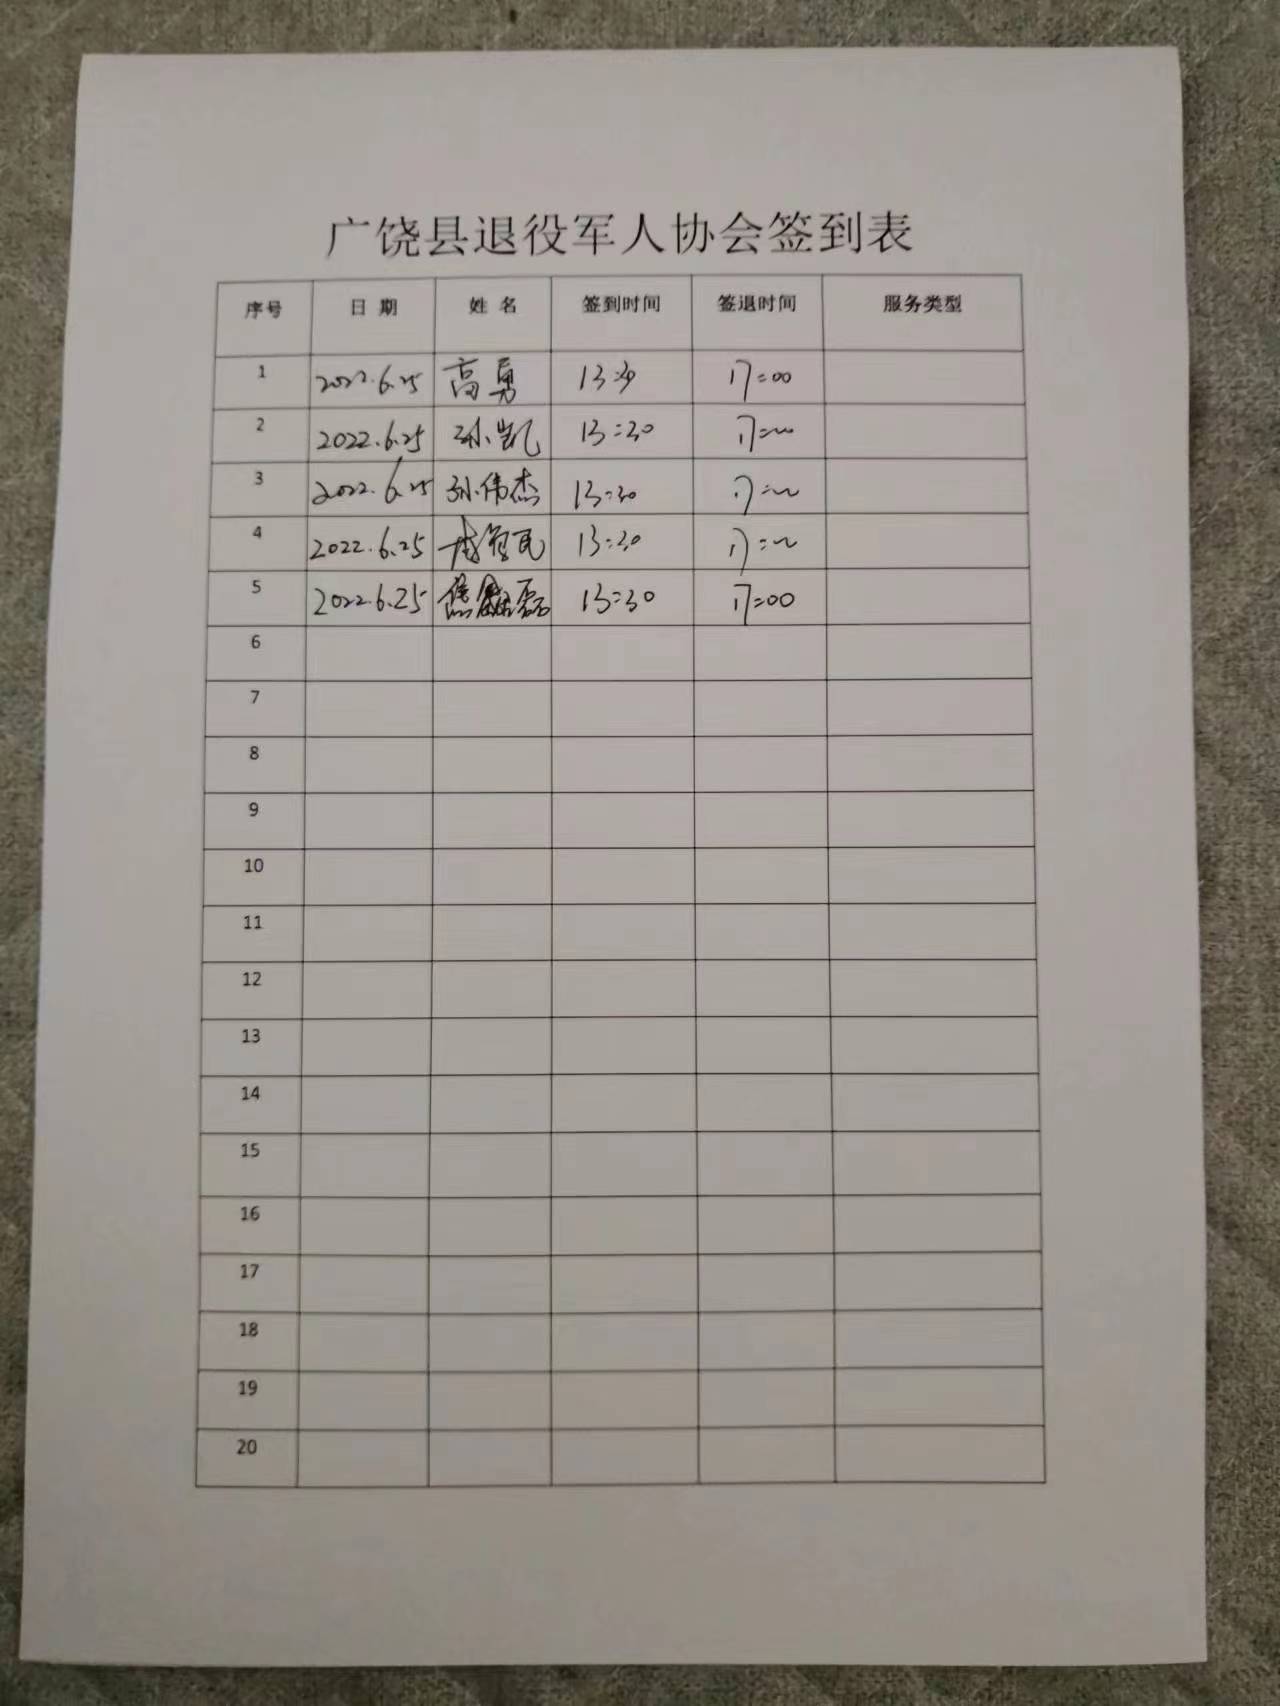 广饶县退役军人协会签到表
序号 日 期 姓 名 签到时间 签退时间 服务类型
1 2022.6.25 高勇 13:30 17:00
2 2022.6.25 孙凯 13:30 17:00
3 2022.6.25 孙伟杰 13:30 17:00
4 2022.6.25 民 13:30 17:00
5 2022.6.25 磊 13:30 17:00
6
7
8
9
10
11
12
13
14
15
16
17
18
19
20